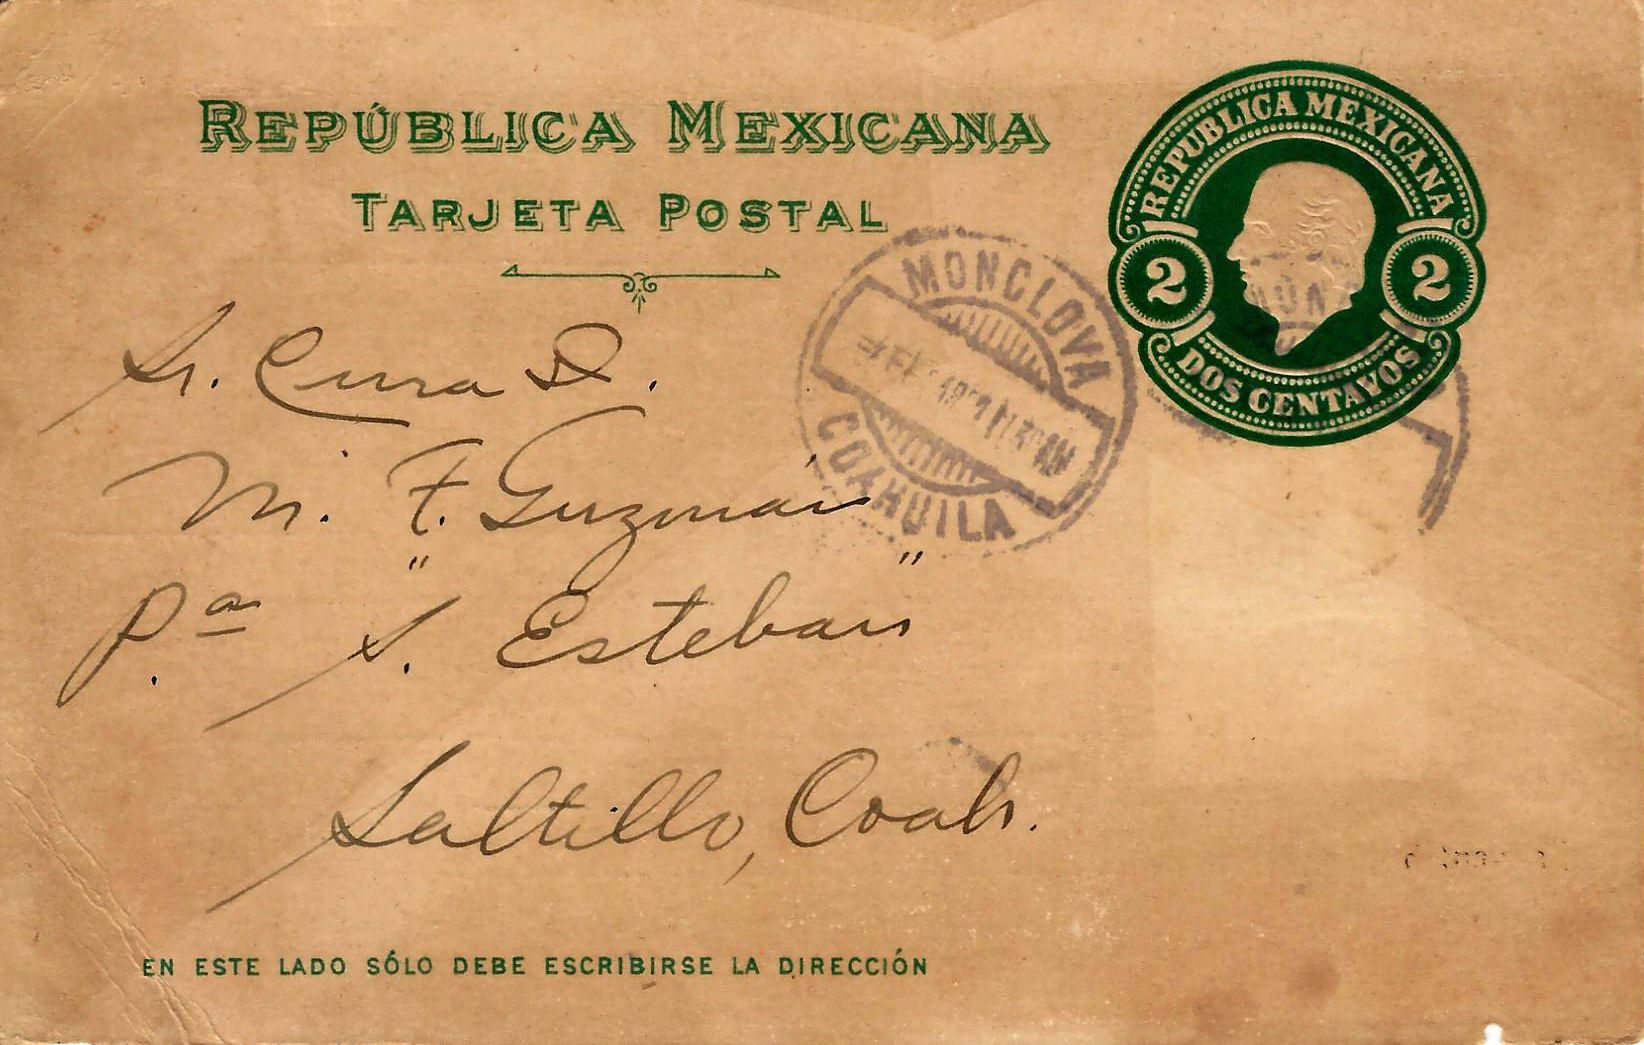 REPÚBLICA MEXICANA
TARJETA POSTAL
REPUBLICA MEXICANA
2 2
DOS CENTAVOS
MONCLOVA
COAHUILA
Sr. Cura D.
M. F. Guzmán
Pa. "S. Esteban"
Saltillo, Coah.
EN ESTE LADO SÓLO DEBE ESCRIBIRSE LA DIRECCIÓN